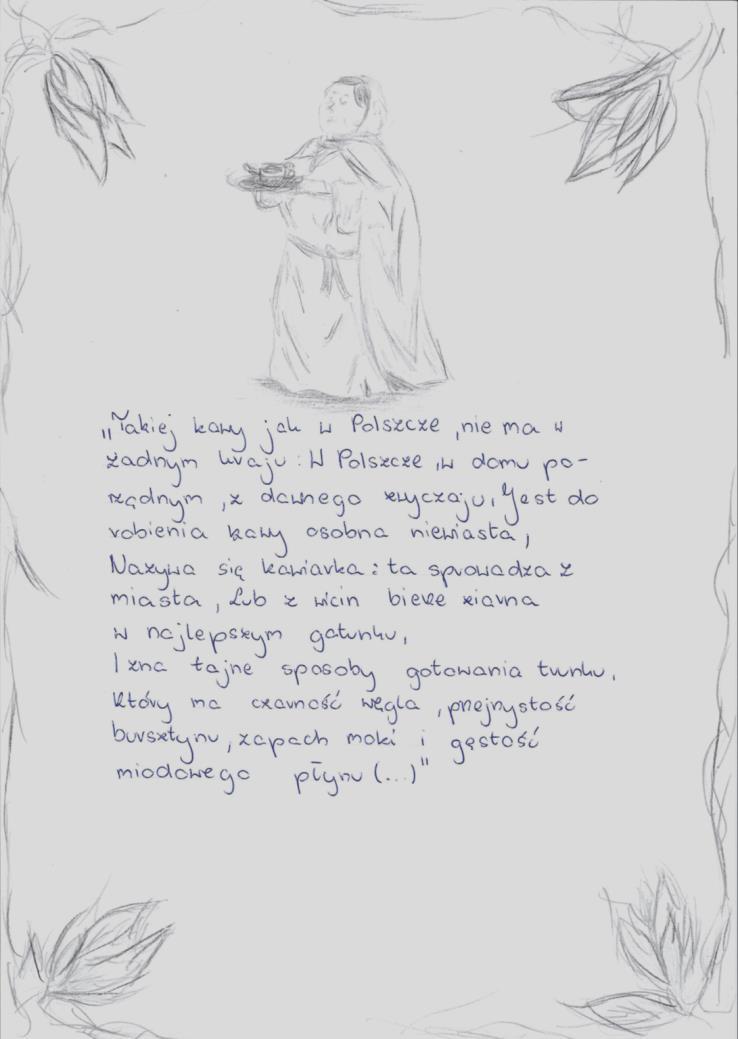 „Takiej kawy jak w Polszcze ,nie ma w
żadnym kraju : W Polszcze ,w domu po-
rządnym ,z dawnego zwyczaju, Jest do
robienia kawy osobna niewiasta,
Nazywa się kawiarka : ta sprowadza z
miasta , Lub z wicin bierze ziarna
w najlepszym gatunku,
I zna tajne sposoby gotowania trunku,
który ma czarność węgla , przejrzystość
bursztynu , zapach moki i gęstość
miodowego płynu (...)"